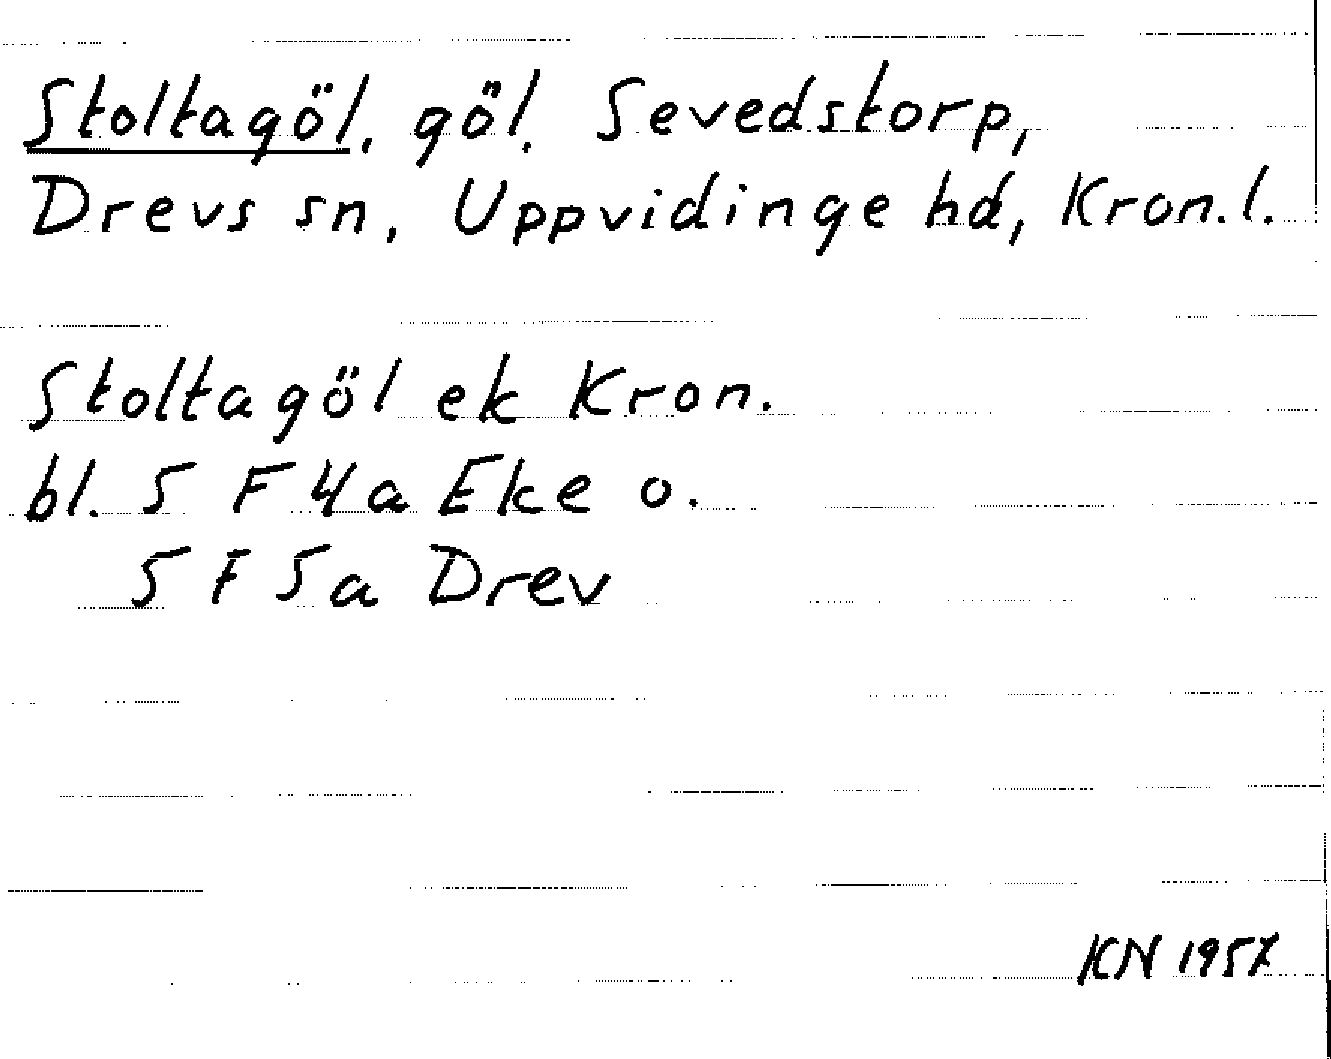 Stoltagöl, göl, Sevedstorp,
Drevs sn, Uppvidinge hd, Kron. l.
Stoltagöl ek Kron.
bl. 5 F 4a Eke o.
5 F 5a Drev
KN 1957